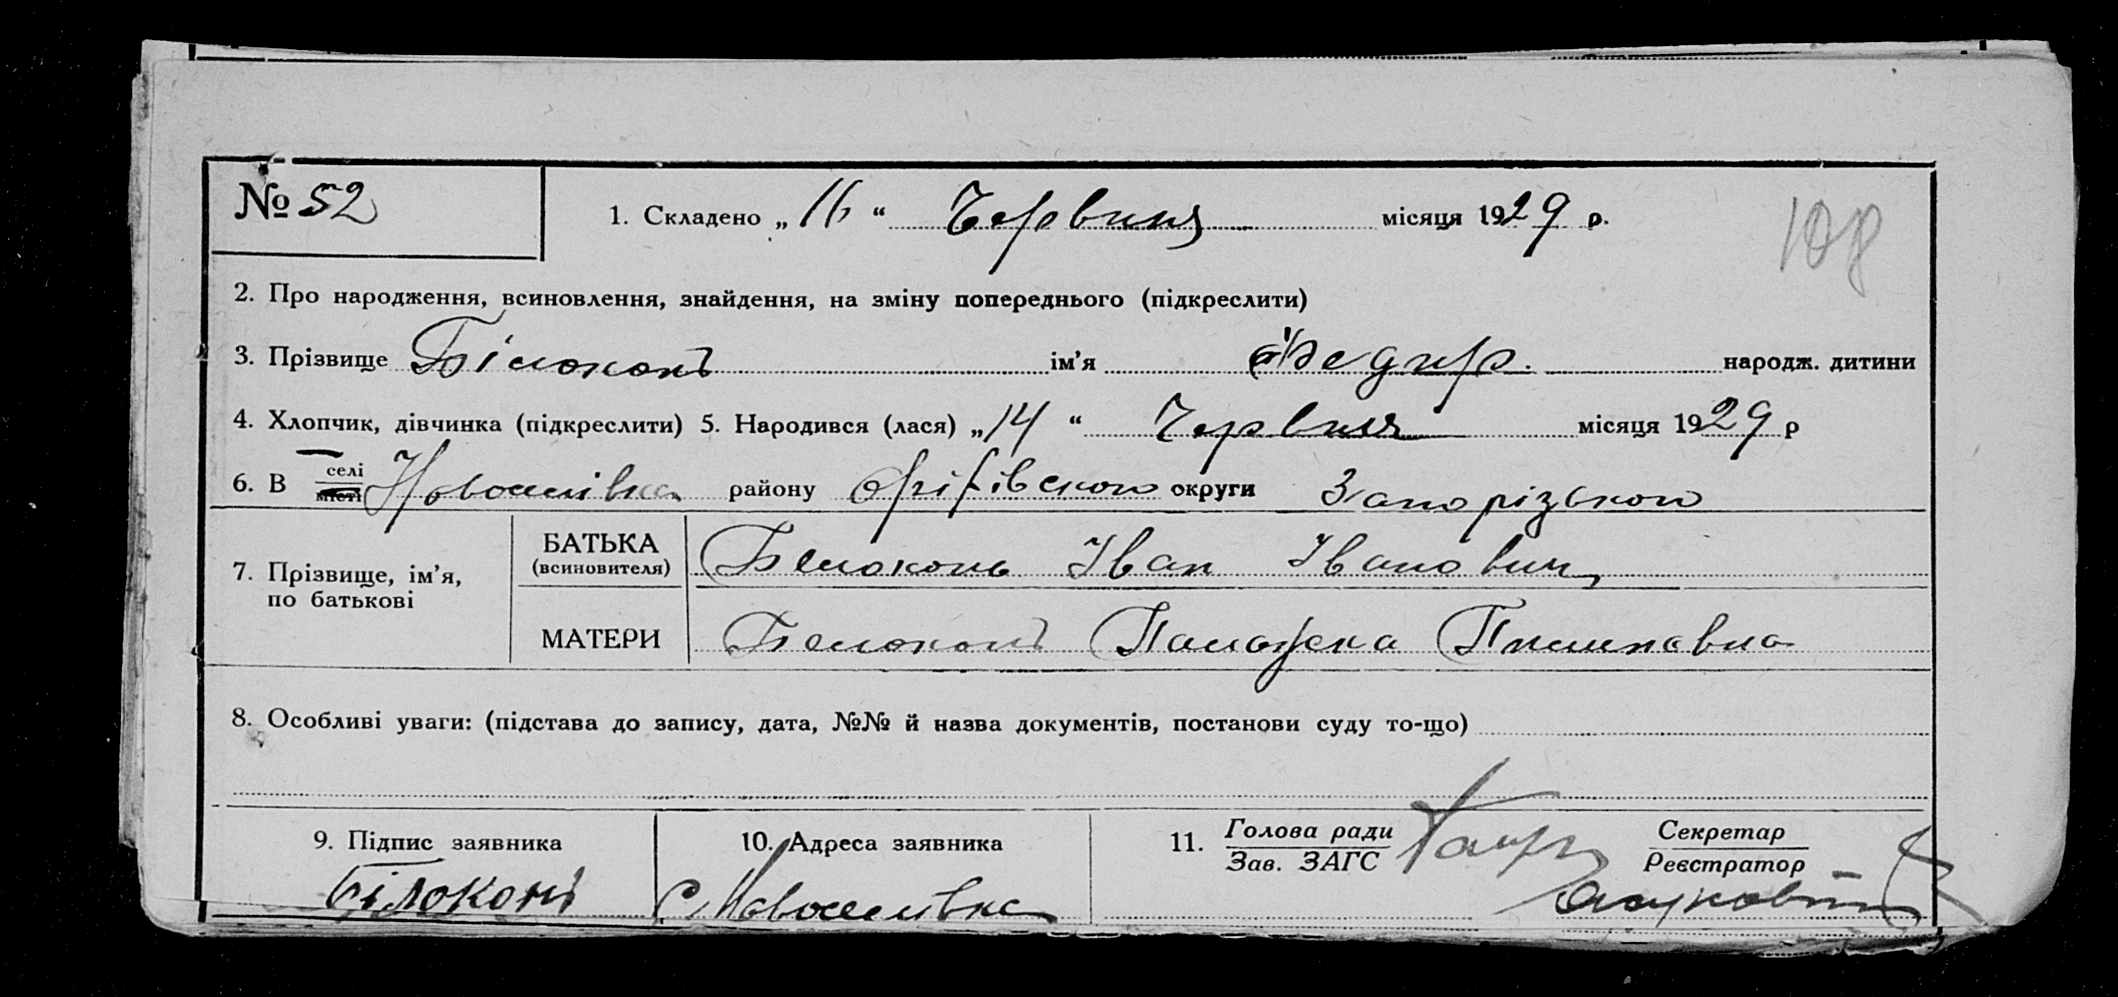 № 52
1. Складено „ 16 “ Червня місяця 1929 р.
108
2. Про народження, всиновлення, знайдення, на зміну попереднього (підкреслити)
3. Прізвище Білоконъ ім’я Федир. народж. дитини
4. Хлопчик, дівчинка (підкреслити) 5. Народився (лася) „ 14 “ Червня місяця 1929 р
6. В селі місті Новоселівка району Оріхівского округи Запорізького
7. Прізвище, ім’я, по батькові
БАТЬКА (всиновителя) Белоконь Іван Іванович
МАТЕРИ Белоконъ Палажка Пилиповна
8. Особливі уваги: (підстава до запису, дата, №№ й назва документів, постанови суду то-що)
9. Підпис заявника
Білоконъ
10. Адреса заявника
с Новоселивка
11. Голова ради
Зав. ЗАГС
Секретар
Реєстратор